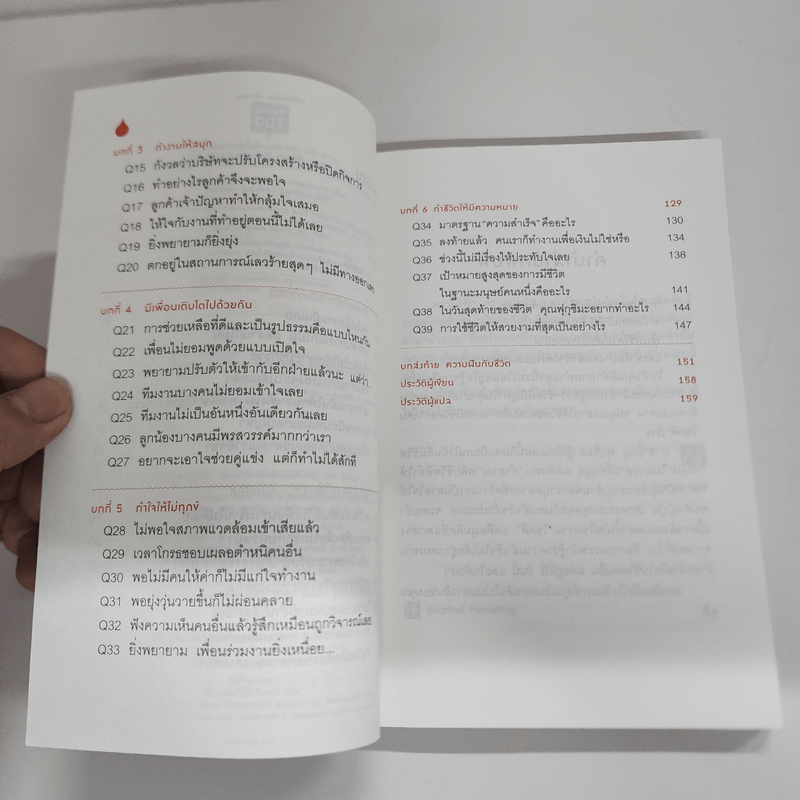 บทที่ 3 ทำงานให้สนุก
Q15 กังวลว่าบริษัทจะปรับโครงสร้างหรือปิดกิจการ
Q16 ทำอย่างไรลูกค้าจึงจะพอใจ
Q17 ลูกค้าเจ้าปัญหาทำให้กลุ้มใจเสมอ
Q18 ให้ใจกับงานที่ทำอยู่ตอนนี้ไม่ได้เลย
Q19 ยิ่งพยายามก็ยิ่งยุ่ง
Q20 ตกอยู่ในสถานการณ์เลวร้ายสุดๆ ไม่มีทางออกเลย
บทที่ 4 มีเพื่อนเติบโตไปด้วยกัน
Q21 การช่วยเหลือที่ดีและเป็นรูปธรรมคือแบบไหนกัน
Q22 เพื่อนไม่ยอมพูดด้วยแบบเปิดใจ
Q23 พยายามปรับตัวให้เข้ากับอีกฝ่ายแล้วนะ แต่ว่า...
Q24 ทีมงานบางคนไม่ยอมเข้าใจเลย
Q25 ทีมงานไม่เป็นอันหนึ่งอันเดียวกันเลย
Q26 ลูกน้องบางคนมีพรสวรรค์มากกว่าเรา
Q27 อยากจะเอาใจช่วยคู่แข่ง แต่ก็ทำไม่ได้สักที
บทที่ 5 ทำใจให้ไม่ทุกข์
Q28 ไม่พอใจสภาพแวดล้อมเข้าเสียแล้ว
Q29 เวลาโกรธชอบเผลอตำหนิคนอื่น
Q30 พอไม่มีคนให้ค่าก็ไม่มีแก่ใจทำงาน
Q31 พอยุ่งวุ่นวายขึ้นก็ไม่ผ่อนคลาย
Q32 ฟังความเห็นคนอื่นแล้วรู้สึกเหมือนถูกวิจารณ์เลย
Q33 ยิ่งพยายาม เพื่อนร่วมงานยิ่งเหนื่อย...
บทที่ 6 ทำชีวิตให้มีความหมาย 129
Q34 มาตรฐาน “ความสำเร็จ” คืออะไร 130
Q35 ลงท้ายแล้ว คนเราก็ทำงานเพื่อเงินไม่ใช่หรือ 134
Q36 ช่วงนี้ไม่มีเรื่องให้ประทับใจเลย 138
Q37 เป้าหมายสูงสุดของการมีชีวิต
ในฐานะมนุษย์คนหนึ่งคืออะไร 141
Q38 ในวันสุดท้ายของชีวิต คุณฟุกุชิมะอยากทำอะไร 144
Q39 การใช้ชีวิตให้สวยงามที่สุดเป็นอย่างไร 147
บทส่งท้าย ความฝันกับชีวิต 151
ประวัติผู้เขียน 158
ประวัติผู้แปล 159